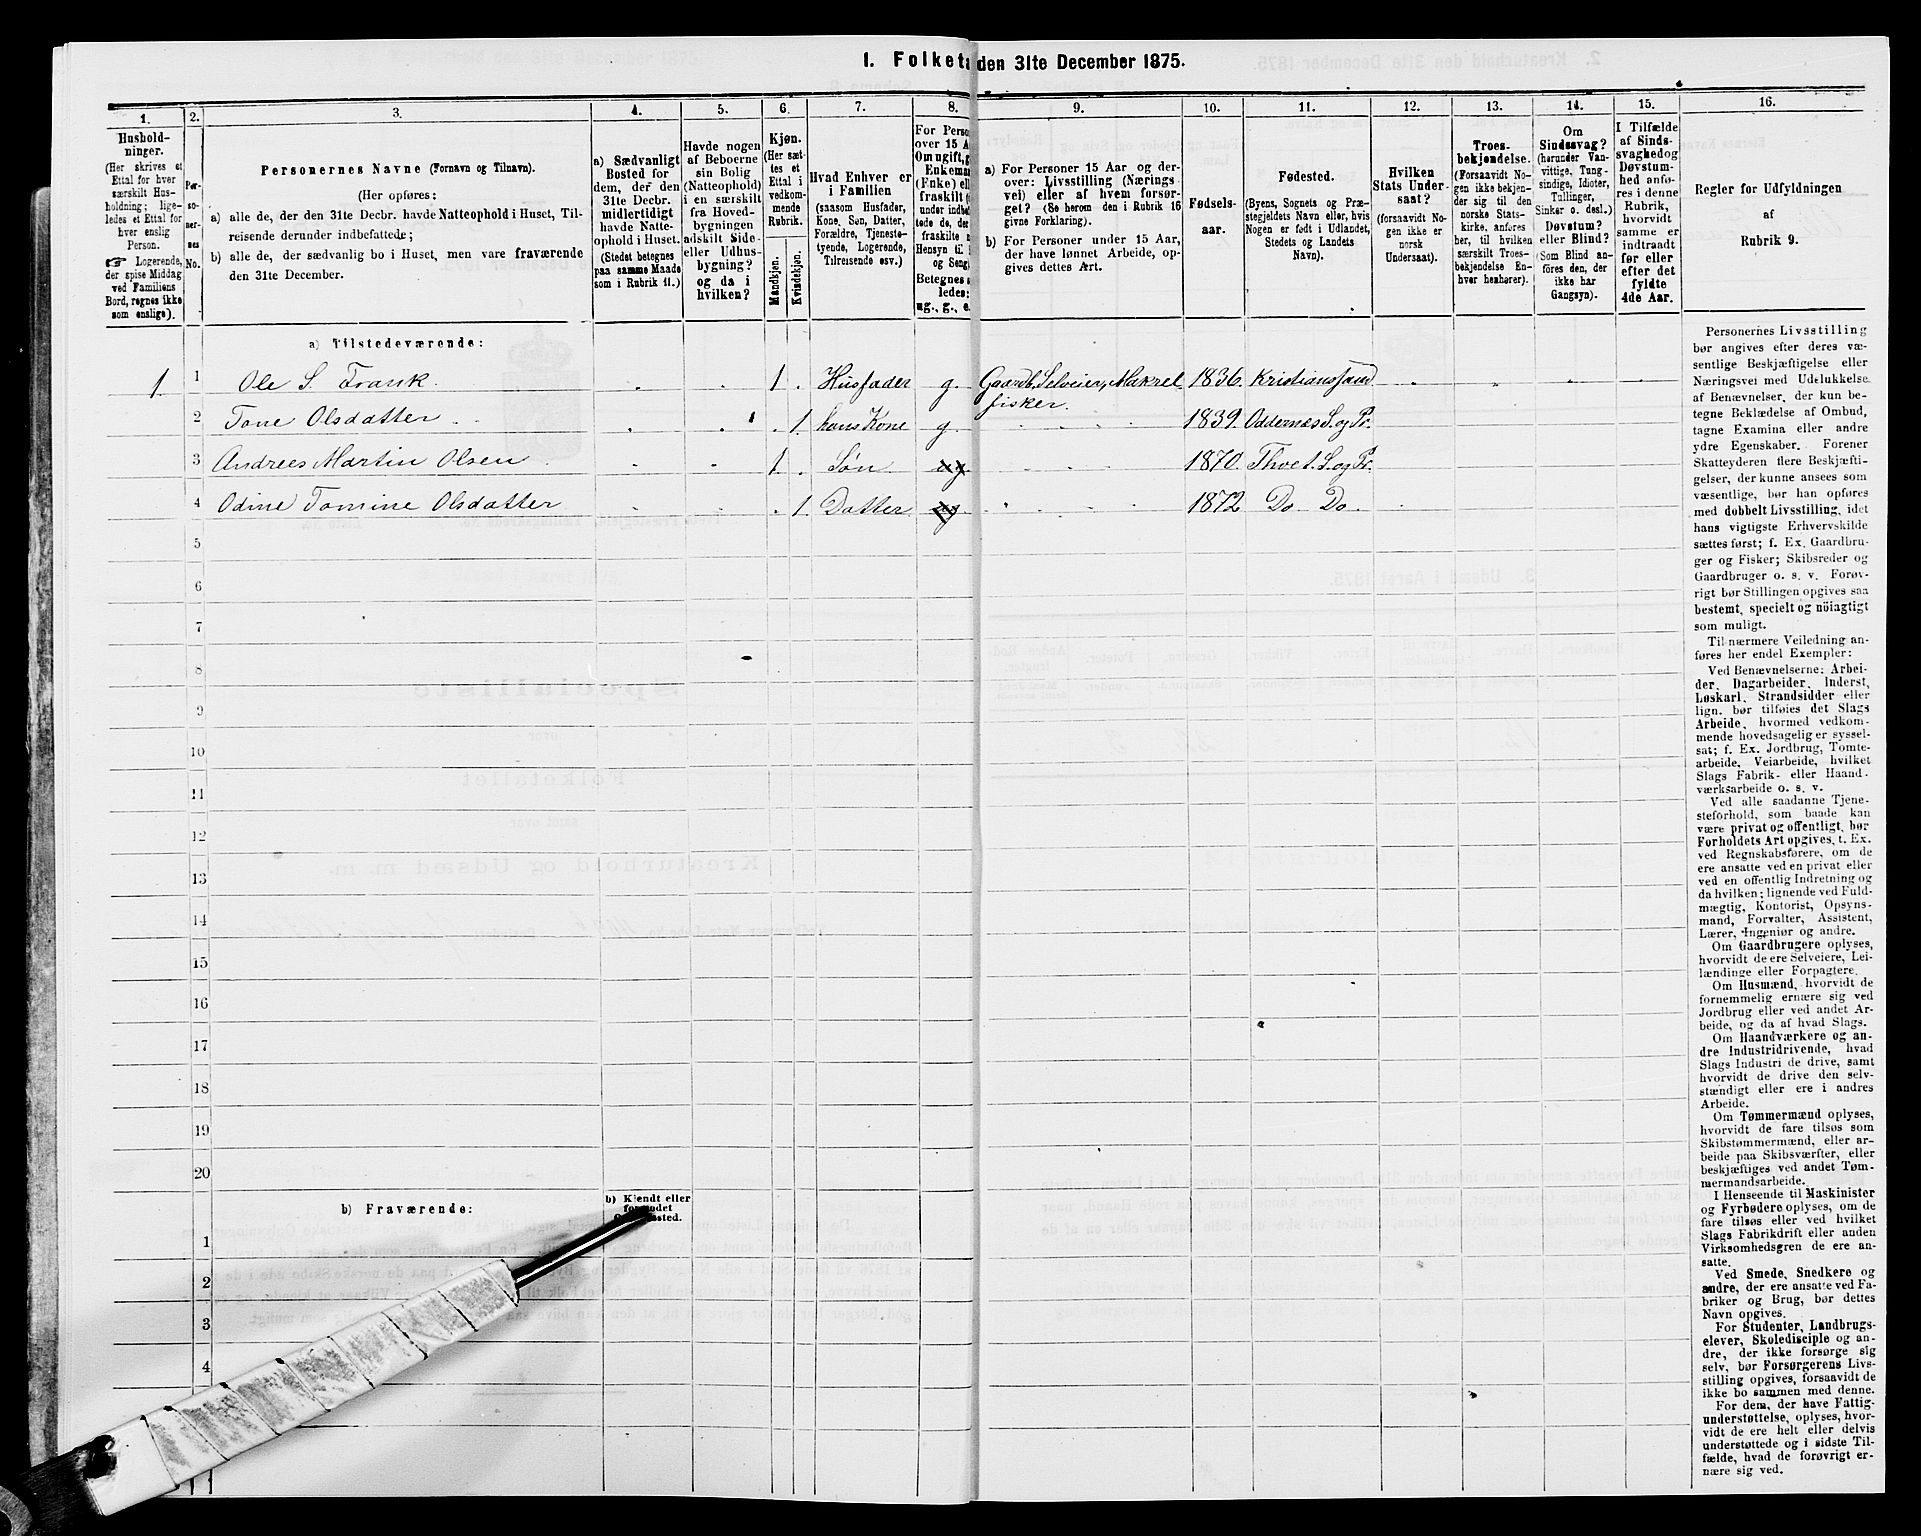 I. Folketa den 31te December 1875.
1.
Hushold-
ninger.
(Her skrives et
Ettal for hver
særskilt Hus-
holdning; lige-
ledes et Ettal for
hver enslig
Person.
☞ Logerende,
der spise Middag
ved Familiens
Bord, regnes ikke
som enslige).
2.
Per-
so-
ner-
nes
No.
3.
Personernes Navne (Fornavn og Tilnavn).
(Her opføres:
a) alle de, der den 31te Decbr. havde Natteophold i Huset, Til-
reisende derunder indbefattede;
b) alle de, der sædvanlig bo i Huset, men vare fraværende
den 31te December.
4.
a) Sædvanligt
Bosted for
dem, der den
31te Decbr.
midlertidigt
havde Natte-
ophold i Huset.
(Stedet betegnes
paa samme Maade
som i Rubrik 11.)
5.
Havde nogen
af Beboerne
sin Bolig
(Natteophold)
i en særskilt
fra Hoved-
bygningen
adskilt Side-
eller Udhus-
bygning?
og da i
hvilken?
6.
Kjøn.
(Her sæt-
tes et
Ettal i
vedkom-
mende
Rubrik.
Mandkjøn.
Kvindekjøn.
7.
Hvad Enhver er
i Familien
(saasom Husfader,
Kone, Søn, Datter,
Forældre, Tjeneste-
tyende, Logerende,
Tilreisende osv.)
8.
For Perso
over 15 A
Om ugift, g
Enkema
(Enke) ell
fraskilt (
under indbe
tede de, der
fraskilte m
Hensyn til
og Seng
Betegnes s
ledes:
ug., g., e.
9.
a) For Personer 15 Aar og der-
over: Livsstilling (Nærings
vei) eller af hvem forsør-
get? (Se herom den i Rubrik 16
givne Forklaring).
b) For Personer under 15 Aar,
der have lønnet Arbeide, op-
gives dettes Art.
10.
Fødsels-
aar.
11.
Fødested.
(Byens, Sognets og Præ-
stegjeldets Navn eller, hvis
Nogen er født i Udlandet,
Stedets og Landets
Navn).
12.
Hvilken
Stats Under-
saat?
(forsaavidt No-
gen ikke er
norsk
Undersaat).
13.
Troes-
bekjendelse.
(Forsaavidt No-
gen ikke bekjen-
der sig til den
norske Stats-
kirke, anføres
her, til hvilken
særskilt Troes-
bekjendelse En-
hver henhører).
14.
Om
Sindssvag?
(herunder Van-
vittige, Tung-
sindige, Idioter,
Tullinger,
Sinker o. desl.)
Døvstum?
eller Blind?
(Som Blind an-
føres den, der
ikke har
Gangsyn).
15.
I Tilfælde
af Sinds-
svaghed og
Døvstum-
hed anfø-
res i denne
Rubrik,
hvorvidt
samme er
indtraadt
før eller
efter det
fyldte
4de Aar.
16.
Regler for Udfyldningen
af
Rubrik 9.
a) Tilstedeværende:
1 1 Ole S. Frank. 1 Husfader g. Gaardb, Selveier, Makrel- 1836. Kristianssand
fisker.
2 Tone Olsdatter 1. hans Kone g. 1839. Oddernæs S. og Pr.
3 Andrees Martin Olsen 1 Søn ug. 1870. Thvet. S. og Pr.
4 Odine Tomine Olsdatter 1 Datter 1872 Do Do
5
6
7
8
9
10
11
12
13
14
15
16
17
18
19
20
b) Fraværende:
b) Kjendt eller
1
2
3
4
Personernes Livsstilling
bør angives efter deres væ-
sentlige Beskjæftigelse eller
Næringsvei med Udelukkelse
af Benævnelser, der kun be-
tegne Beklædelse af Ombud,
tagne Examina eller andre
ydre Egenskaber. Forener
Skatteyderen flere Beskjæfti-
gelser, der kunne ansees som
væsentlige, bør han opføres
med dobbelt Livsstilling, idet
hans vigtigste Erhvervskilde
sættes først; f. Ex. Gaardbru-
ger og Fisker; Skibsreder og
Gaardbruger o. s. v. Forøv-
rigt bør Stillingen opgives saa
bestemt, specielt og nöiagtigt
som muligt.
Til nærmere Veiledning an-
føres her endel Exempler:
Ved Benævnelserne: Arbei-
der, Dagarbeider, Inderst,
Løskarl, Strandsidder eller
lign. bør tilføies det Slags
Arbeide, hvormed vedkom-
mende hovedsagelig er syssel-
sat; f. Ex. Jordbrug, Tomte-
arbeide, Veiarbeide, hvilket
Slags Fabrik- eller Haand-
værksarbeide o. s. v.
Ved alle saadanne Tjene-
steforhold, som baade kan
være privat og offentligt, bør
Forholdets Art opgives, t. Ex.
ved Regnskabsførere, om de
ere ansatte ved en privat eller
ved en offentlig Indretning og
da hvilken; lignende ved Fuld-
mægtig, Kontorist, Opsyns-
mand, Forvalter, Assistent,
Lærer, Ingeniør og andre.
Om Gaardbrugere oplyses,
hvorvidt de ere Selveiere, Lei-
lændinge eller Forpagtere.
Om Husmænd, hvorvidt de
fornemmelig ernære sig ved
Jordbrug eller ved andet Ar-
beide, og da af hvad Slags.
Om Haandværkere og an-
dre Industridrivende, hvad
Slags Industri de drive, samt
hvorvidt de drive den selv-
stændigt eller ere i andres
Arbeide.
Om Tømmermænd oplyses,
hvorvidt de fare tilsøs som
Skibstømmermænd, eller ar-
beide paa Skibsværfter, eller
beskjæftiges ved andet Tøm-
mermandsarbeide.
I Henseende til Maskinister
og Fyrbødere oplyses, om de
fare tilsøs eller ved hvilket
Slags Fabrikdrift eller anden
Virksomhedsgren de ere an-
satte.
Ved Smede, Snedkere og
andre, der ere ansatte ved Fa-
briker og Brug, bør dettes
Navn opgives.
For Studenter, Landbrugs-
elever, Skoledisciple og an-
dre, der ikke forsørge sig
selv, bør Forsørgerens Livs-
stilling opgives, forsaavidt de
ikke bo sammen med denne.
For dem, der have Fattig-
understøttelse, oplyses, hvor-
vidt de ere helt eller delvis
understøttede og i sidste Til-
fælde, hvad de forøvrigt er-
nære sig ved.